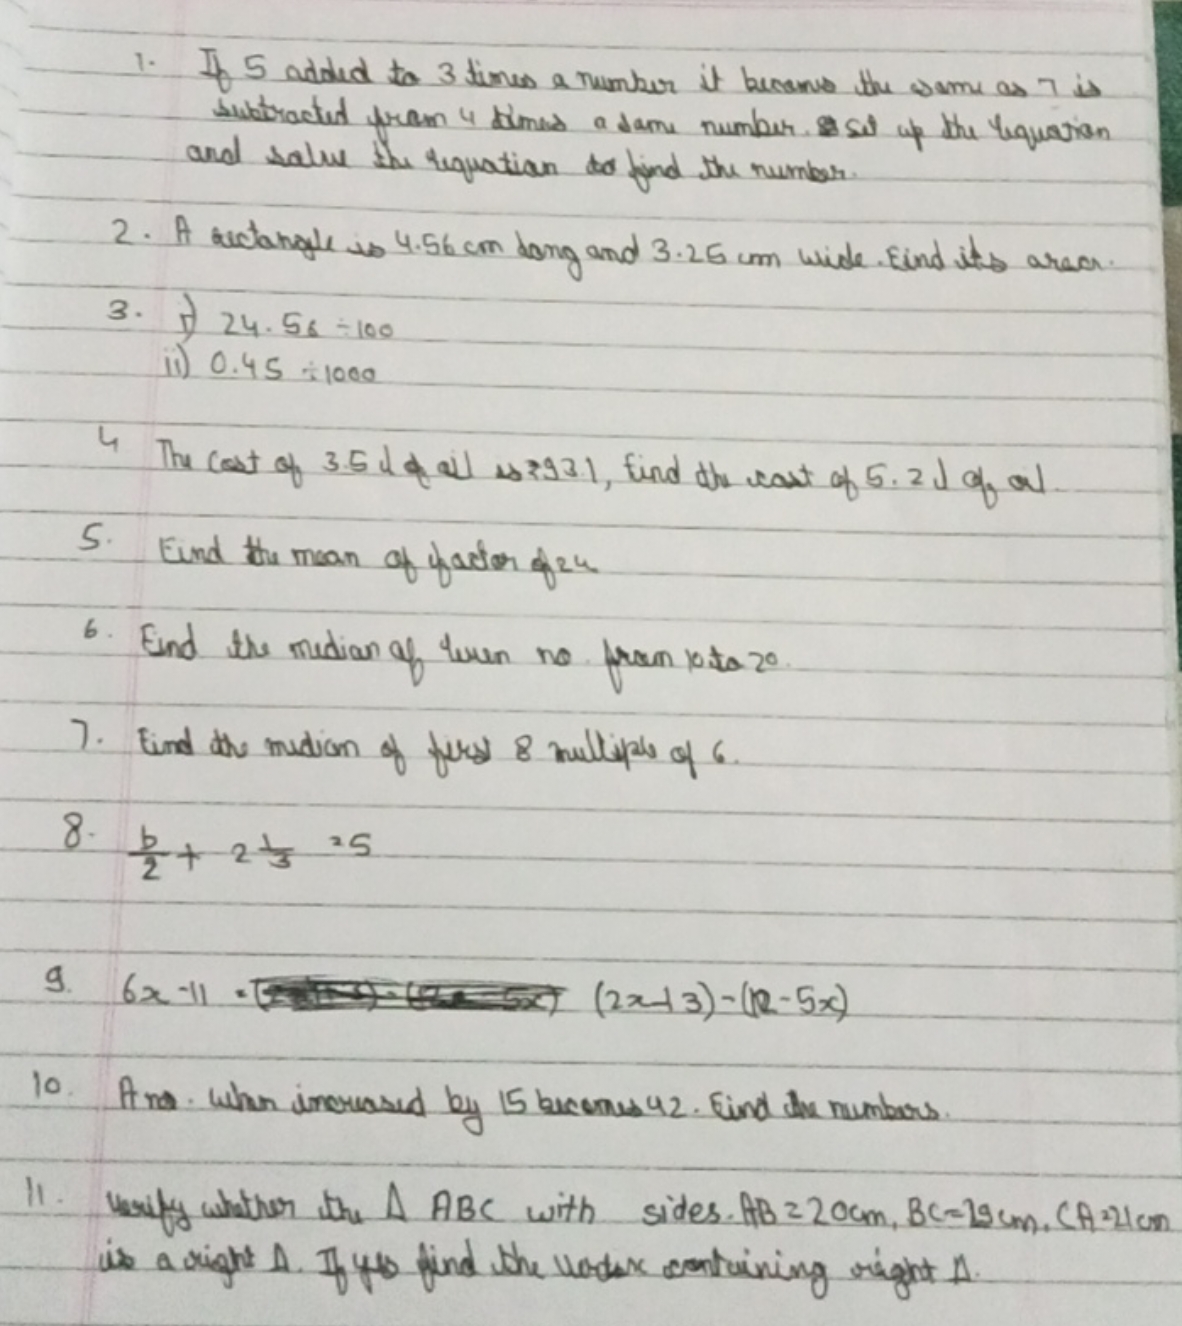 1. If 5 added to 3 times a number it becomes the same as 7 is
subtracted from 4 times a same number. set up the equation
and solve the equation to find the number.
2. A rectangle is 4.56 cm long and 3.25 cm wide. Find its area.
3. i) 24.56 ÷ 100
ii) 0.45 ÷ 1000
4 The cost of 3.5 l of oil is ₹93.1, find the cost of 5.2 l of oil.
5. Find the mean of factor of 24
6. Find the median of even no. from 10 to 20.
7. Find the median of first 8 multiple of 6.
8. b/2 + 2 1/3 = 5
9. 6x - 11 = (2x+3) - (12 - 5x)
10. A no. when increased by 15 becomes 42. Find the numbers.
11. Verify whether the Δ ABC with sides. AB = 20cm, BC = 29cm, CA = 21cm
is a right Δ. If yes find the vertex containing right Δ.